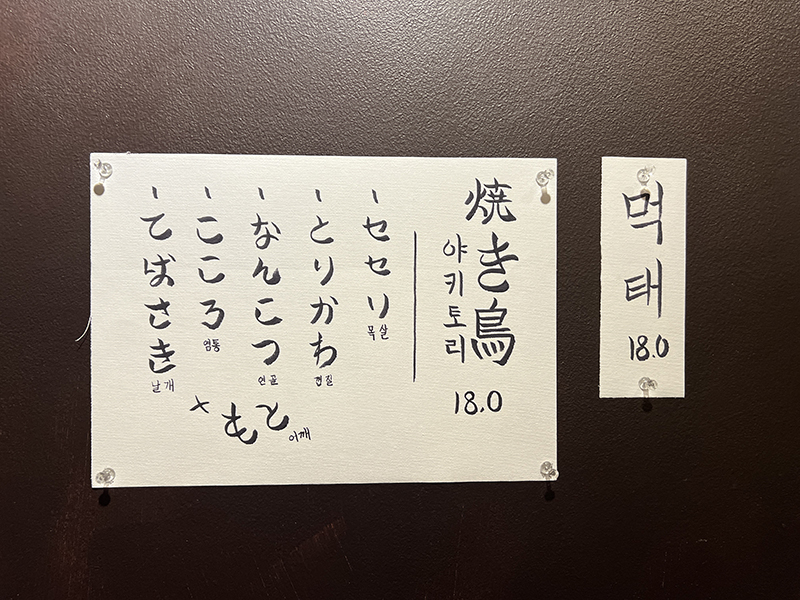 焼き鳥
야키토리
18.0
- セセリ
목살
- とりかわ
껍질
- なんこつ
연골
- こころ
염통
- てばさき
날개
× もと
어깨
먹태
18.0